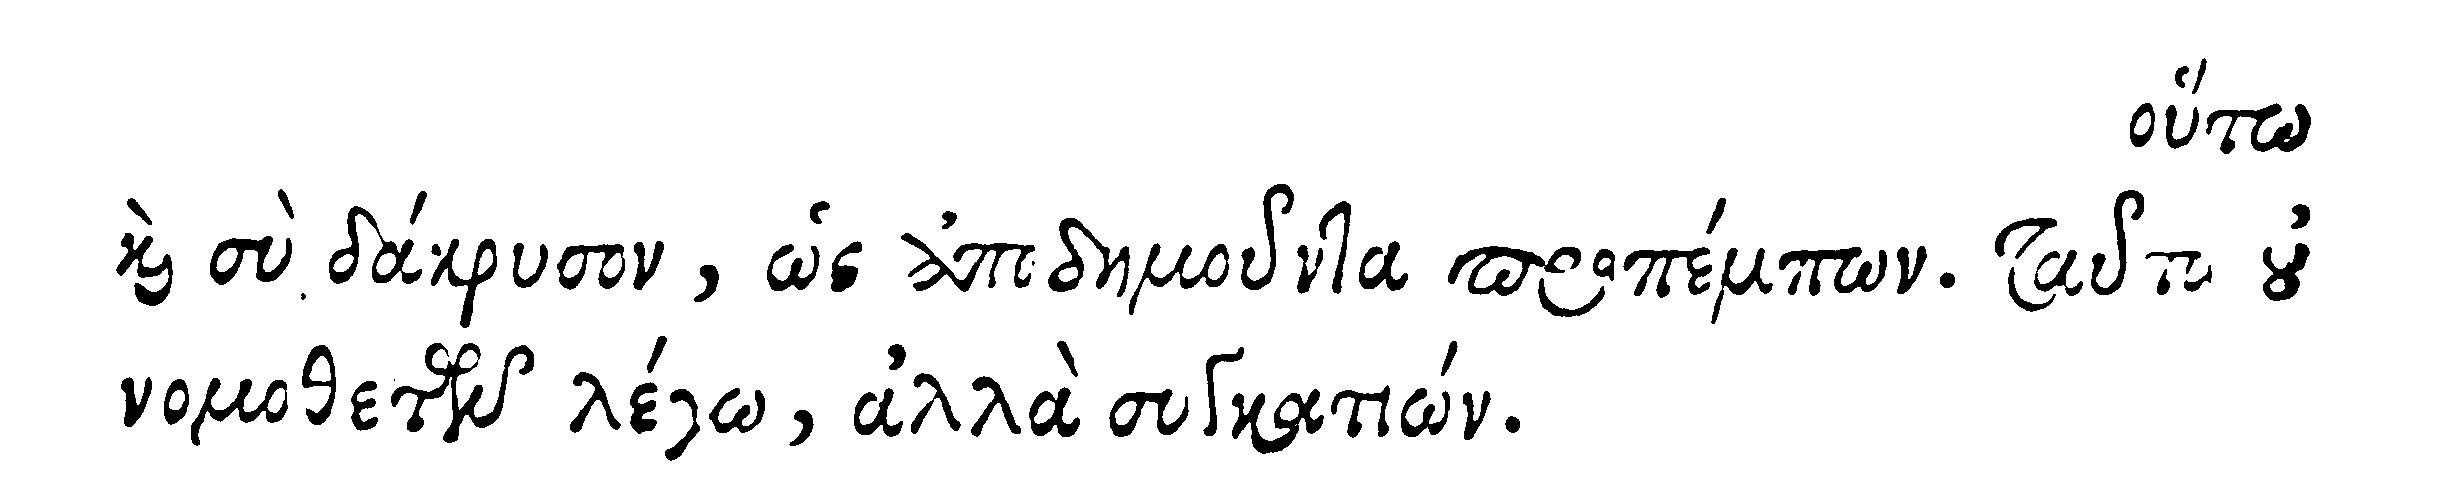 οὕτω
καὶ σὺ δάκρυσον, ὡς ἀποδημοῦντα προπέμπων. Ταῦτα οὐ
νομοθετῶν λέγω, ἀλλὰ συγκατιών.